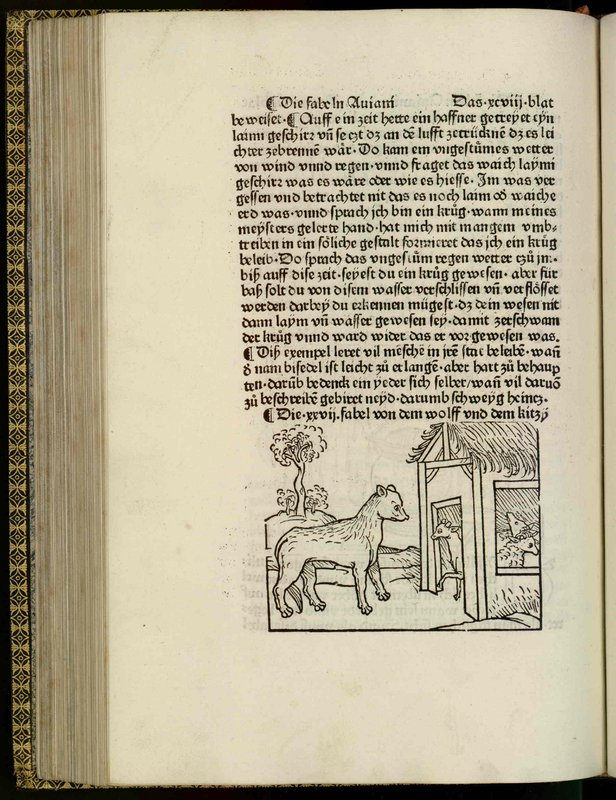 ¶ Die fabeln Auiani Das·xcviij·blat
beweiset·¶ Auff ein zeit hette ein haffner getreyet eyn
laim geschirr vñ seczt dz an dē lufft zetrücknē dz es lei
chter zebrennē wär· Do kam ein vngestůmes wetter
von wind vnnd regen·vnnd fraget das waich laymi
geschirr was es wäre oder wie es hiesse· Im was ver
gessen vnd betrachtet nit das es noch laim oð waiche
erd was·vnnd sprach jch bin ein krůg·wann meines
meysters gelerte hand·hat mich mit mangem vmb⸗
treiben in ein söliche gestalt formieret das jch ein krůg
beleib·Do sprach das vngestům regen wetter czů jm·
biß auff dise zeit·seyest du ein krůg gewesen· aber für
baß solt du von disem wasser verschlissen vñ verflösset
werden darbey du erkennen mügest·dz dein wesen nit
dann laym vñ wasser gewesen sey·damit zerschwam
der krůg vnnd ward wider das er vor gewesen was.
¶ Diß exempel leret vil mēsche in jrē stac beleibē·wañ
ð nam bisedel ist leicht zů erlangē·aber hart zů behaup
ten·darūb bedenck ein yeder sich selber/wañ vil daruō
zů beschreibē gebiret neyd·darumb schweyg heincz·
¶ Die·xxvij·fabel von dem wolff vnd dem kitzy